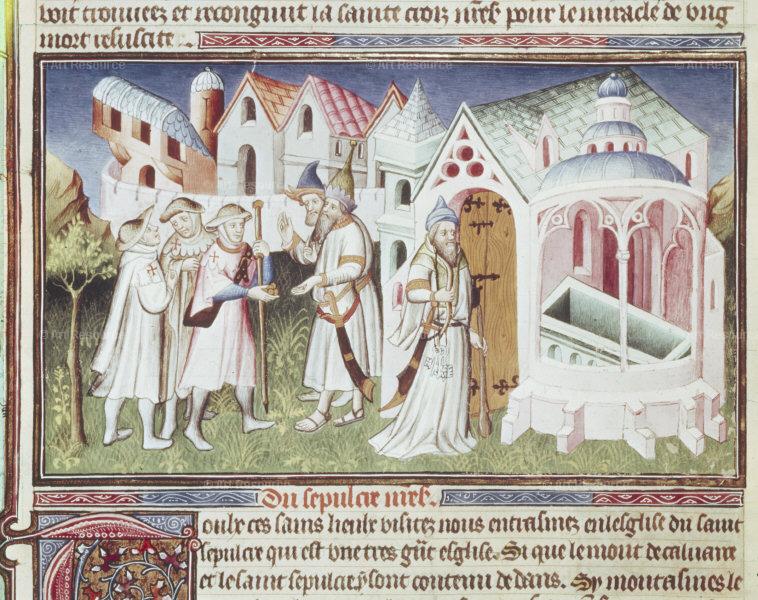 voit trouvees et recongnut la sainte croix nres pour le miracle de ung
mort resuscite.
Du sepulcre nres.
Toulx ces sains lieulx visitez nous entrasmes en lesglise du saint
sepulcre qui est une tres gñt esglise. Si que le mont de calvaire
et le saint sepulcre y sont contenu dedans. Sy montasmes le
© Art Resource